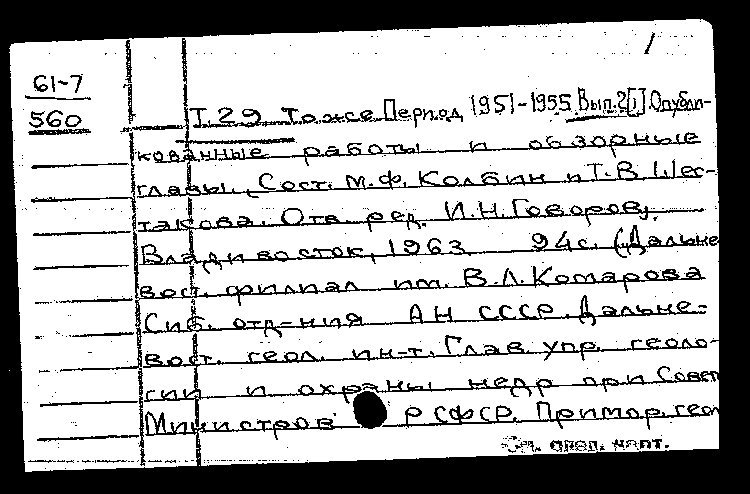 1
61-7
560
Т.29 То же Период 1951-1955 Вып.2[1]. Опубли-
кованные работы и обзорные
главы. (Сост. М.Ф. Колбин и Т.В. Шес-
такова. Отв. ред. И.Н. Говоров).
Владивосток, 1963. 94с. (Дальне
вост. филиал им. В.Л. Комарова
Сиб. отд-ния АН СССР. Дальне-
вост. геол. ин-т. Глав. упр. геоло-
гии и охраны недр при Совет
Министров РСФСР. Примор. геол
См. след. карт.